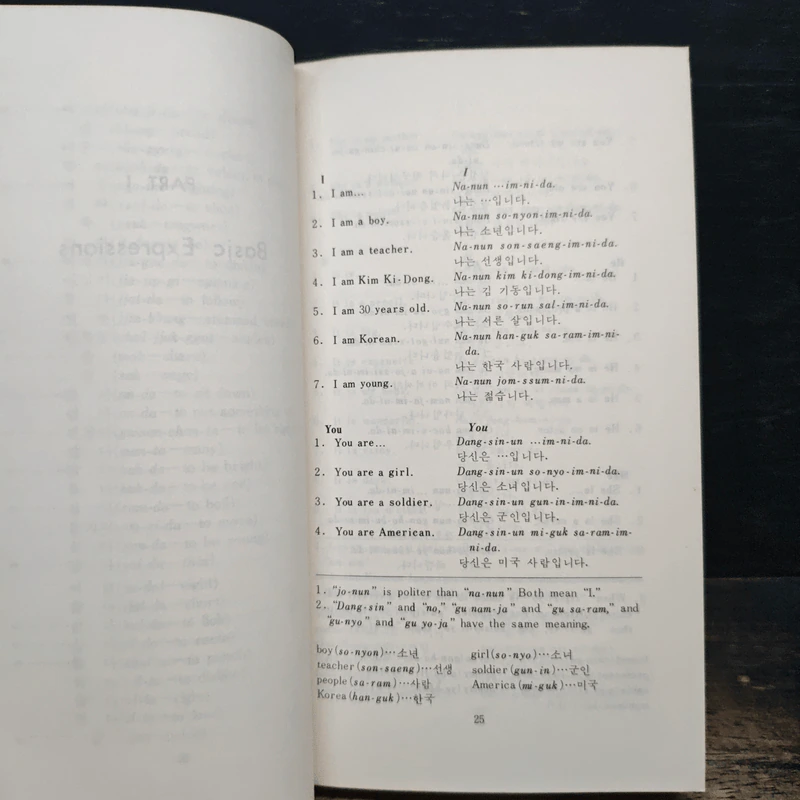 I
I
1. I am...
Na-nun …im-ni-da.
나는 …입니다.
2. I am a boy.
Na-nun so-nyon-im-ni-da.
나는 소년입니다.
3. I am a teacher.
Na-nun son-saeng-im-ni-da.
나는 선생입니다.
4. I am Kim Ki-Dong.
Na-nun kim ki-dong-im-ni-da.
나는 김 기동입니다.
5. I am 30 years old.
Na-nun so-run sal-im-ni-da.
나는 서른 살입니다.
6. I am Korean.
Na-nun han-guk sa-ram-im-ni-
da.
나는 한국 사람입니다.
7. I am young.
Na-nun jom-ssum-ni-da.
나는 젊습니다.
You
You
1. You are...
Dang-sin-un …im-ni-da.
당신은 …입니다.
2. You are a girl.
Dang-sin-un so-nyo-im-ni-da.
당신은 소녀입니다.
3. You are a soldier.
Dang-sin-un gun-in-im-ni-da.
당신은 군인입니다.
4. You are American.
Dang-sin-un mi-guk sa-ram-im-
ni-da.
당신은 미국 사람입니다.
1. "jo-nun" is politer than "na-nun" Both mean "I."
2. "Dang-sin" and "no," "gu nam-ja" and "gu sa-ram," and
"gu-nyo" and "gu yo-ja" have the same meaning.
boy(so-nyon)…소년 girl(so-nyo)…소녀
teacher(son-saeng)…선생 soldier(gun-in)…군인
people(sa-ram)…사람 America(mi-guk)…미국
Korea(han-guk)…한국
25
PART I
Basic Expressions